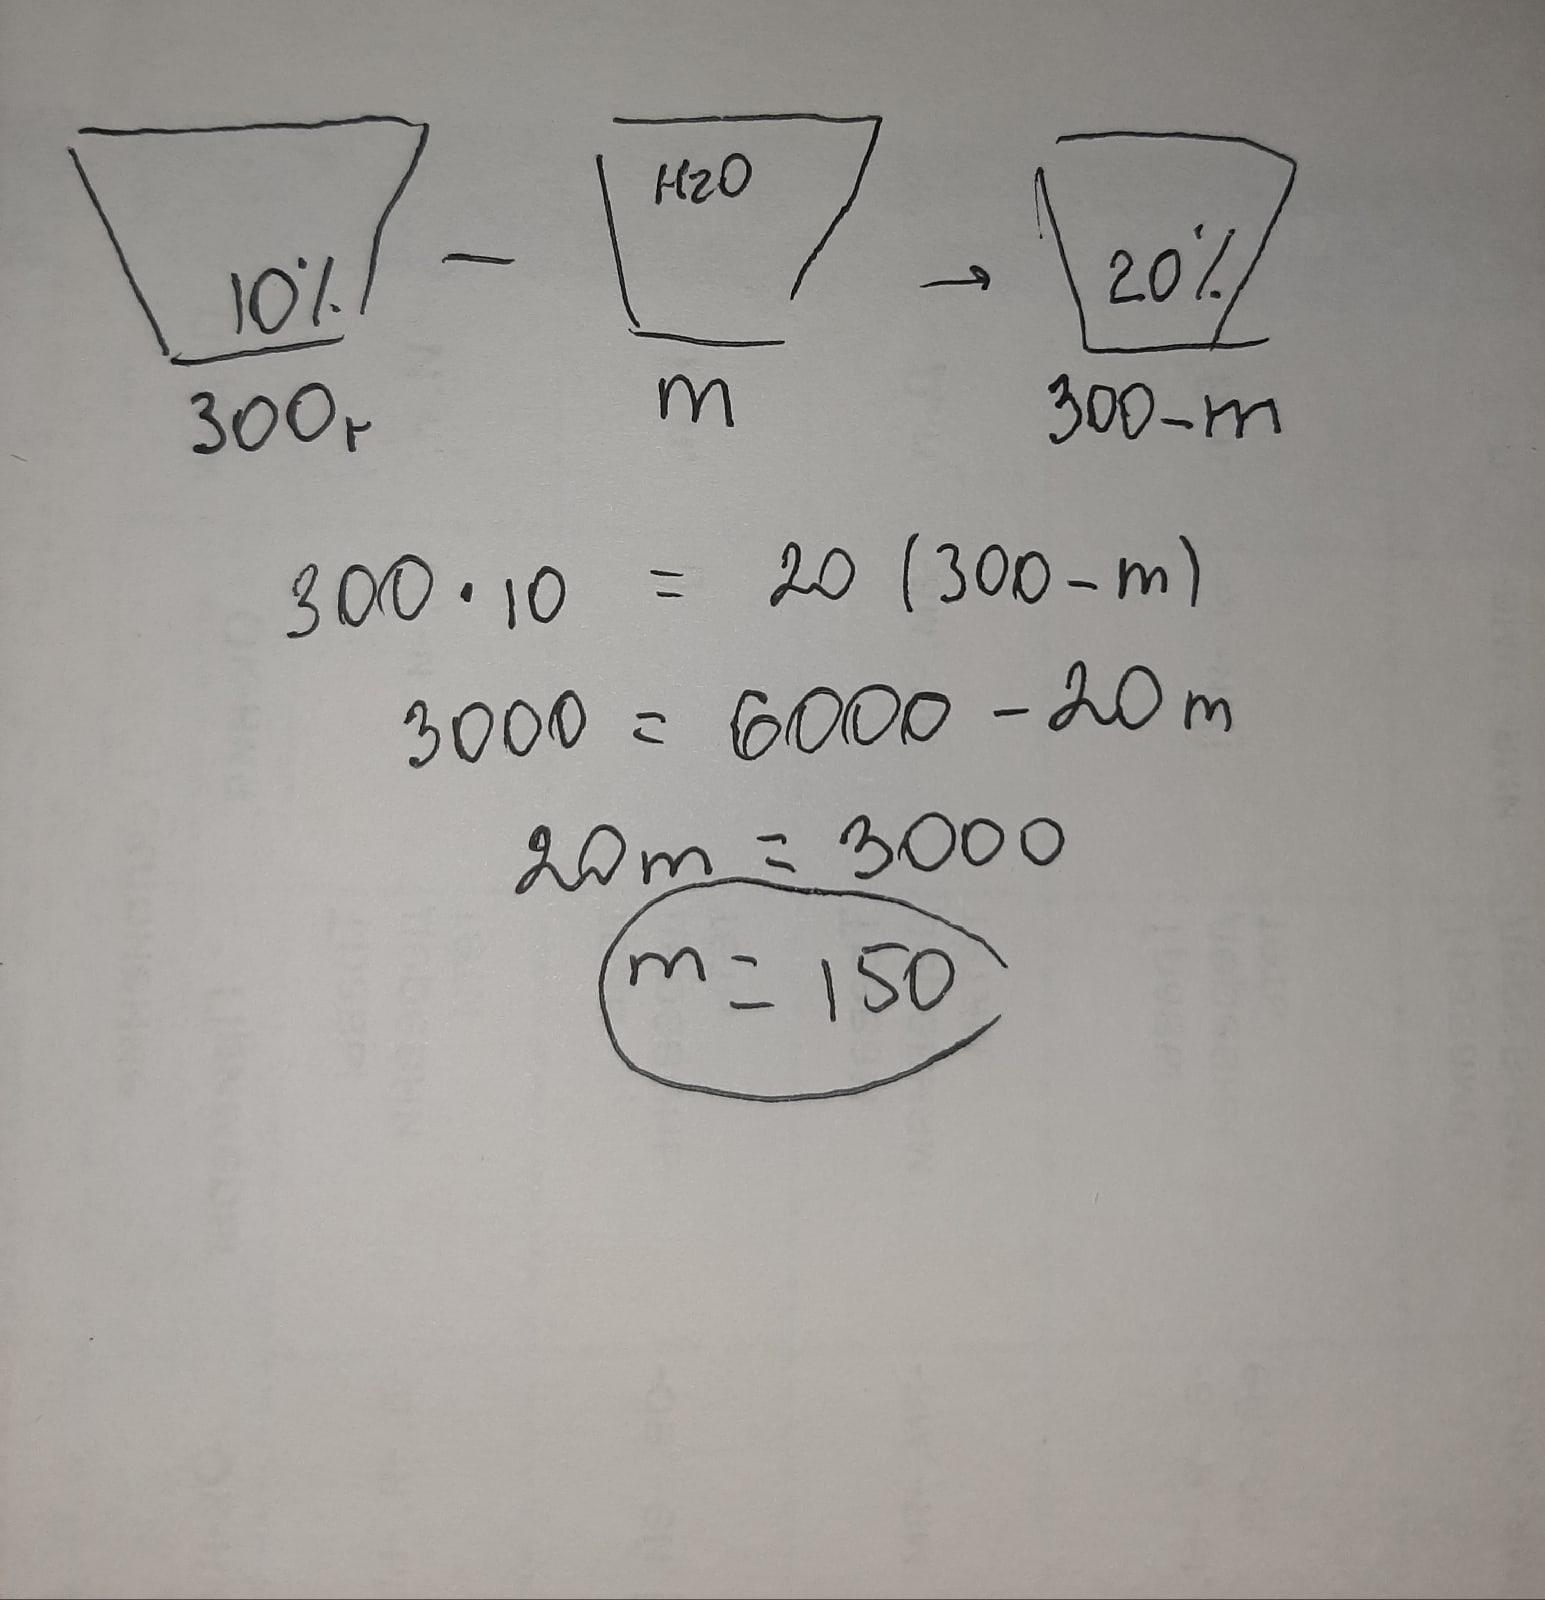 H2O
10% 20%
300г m 300-m
300·10 = 20 (300-m)
3000 = 6000 - 20m
20m = 3000
m = 150